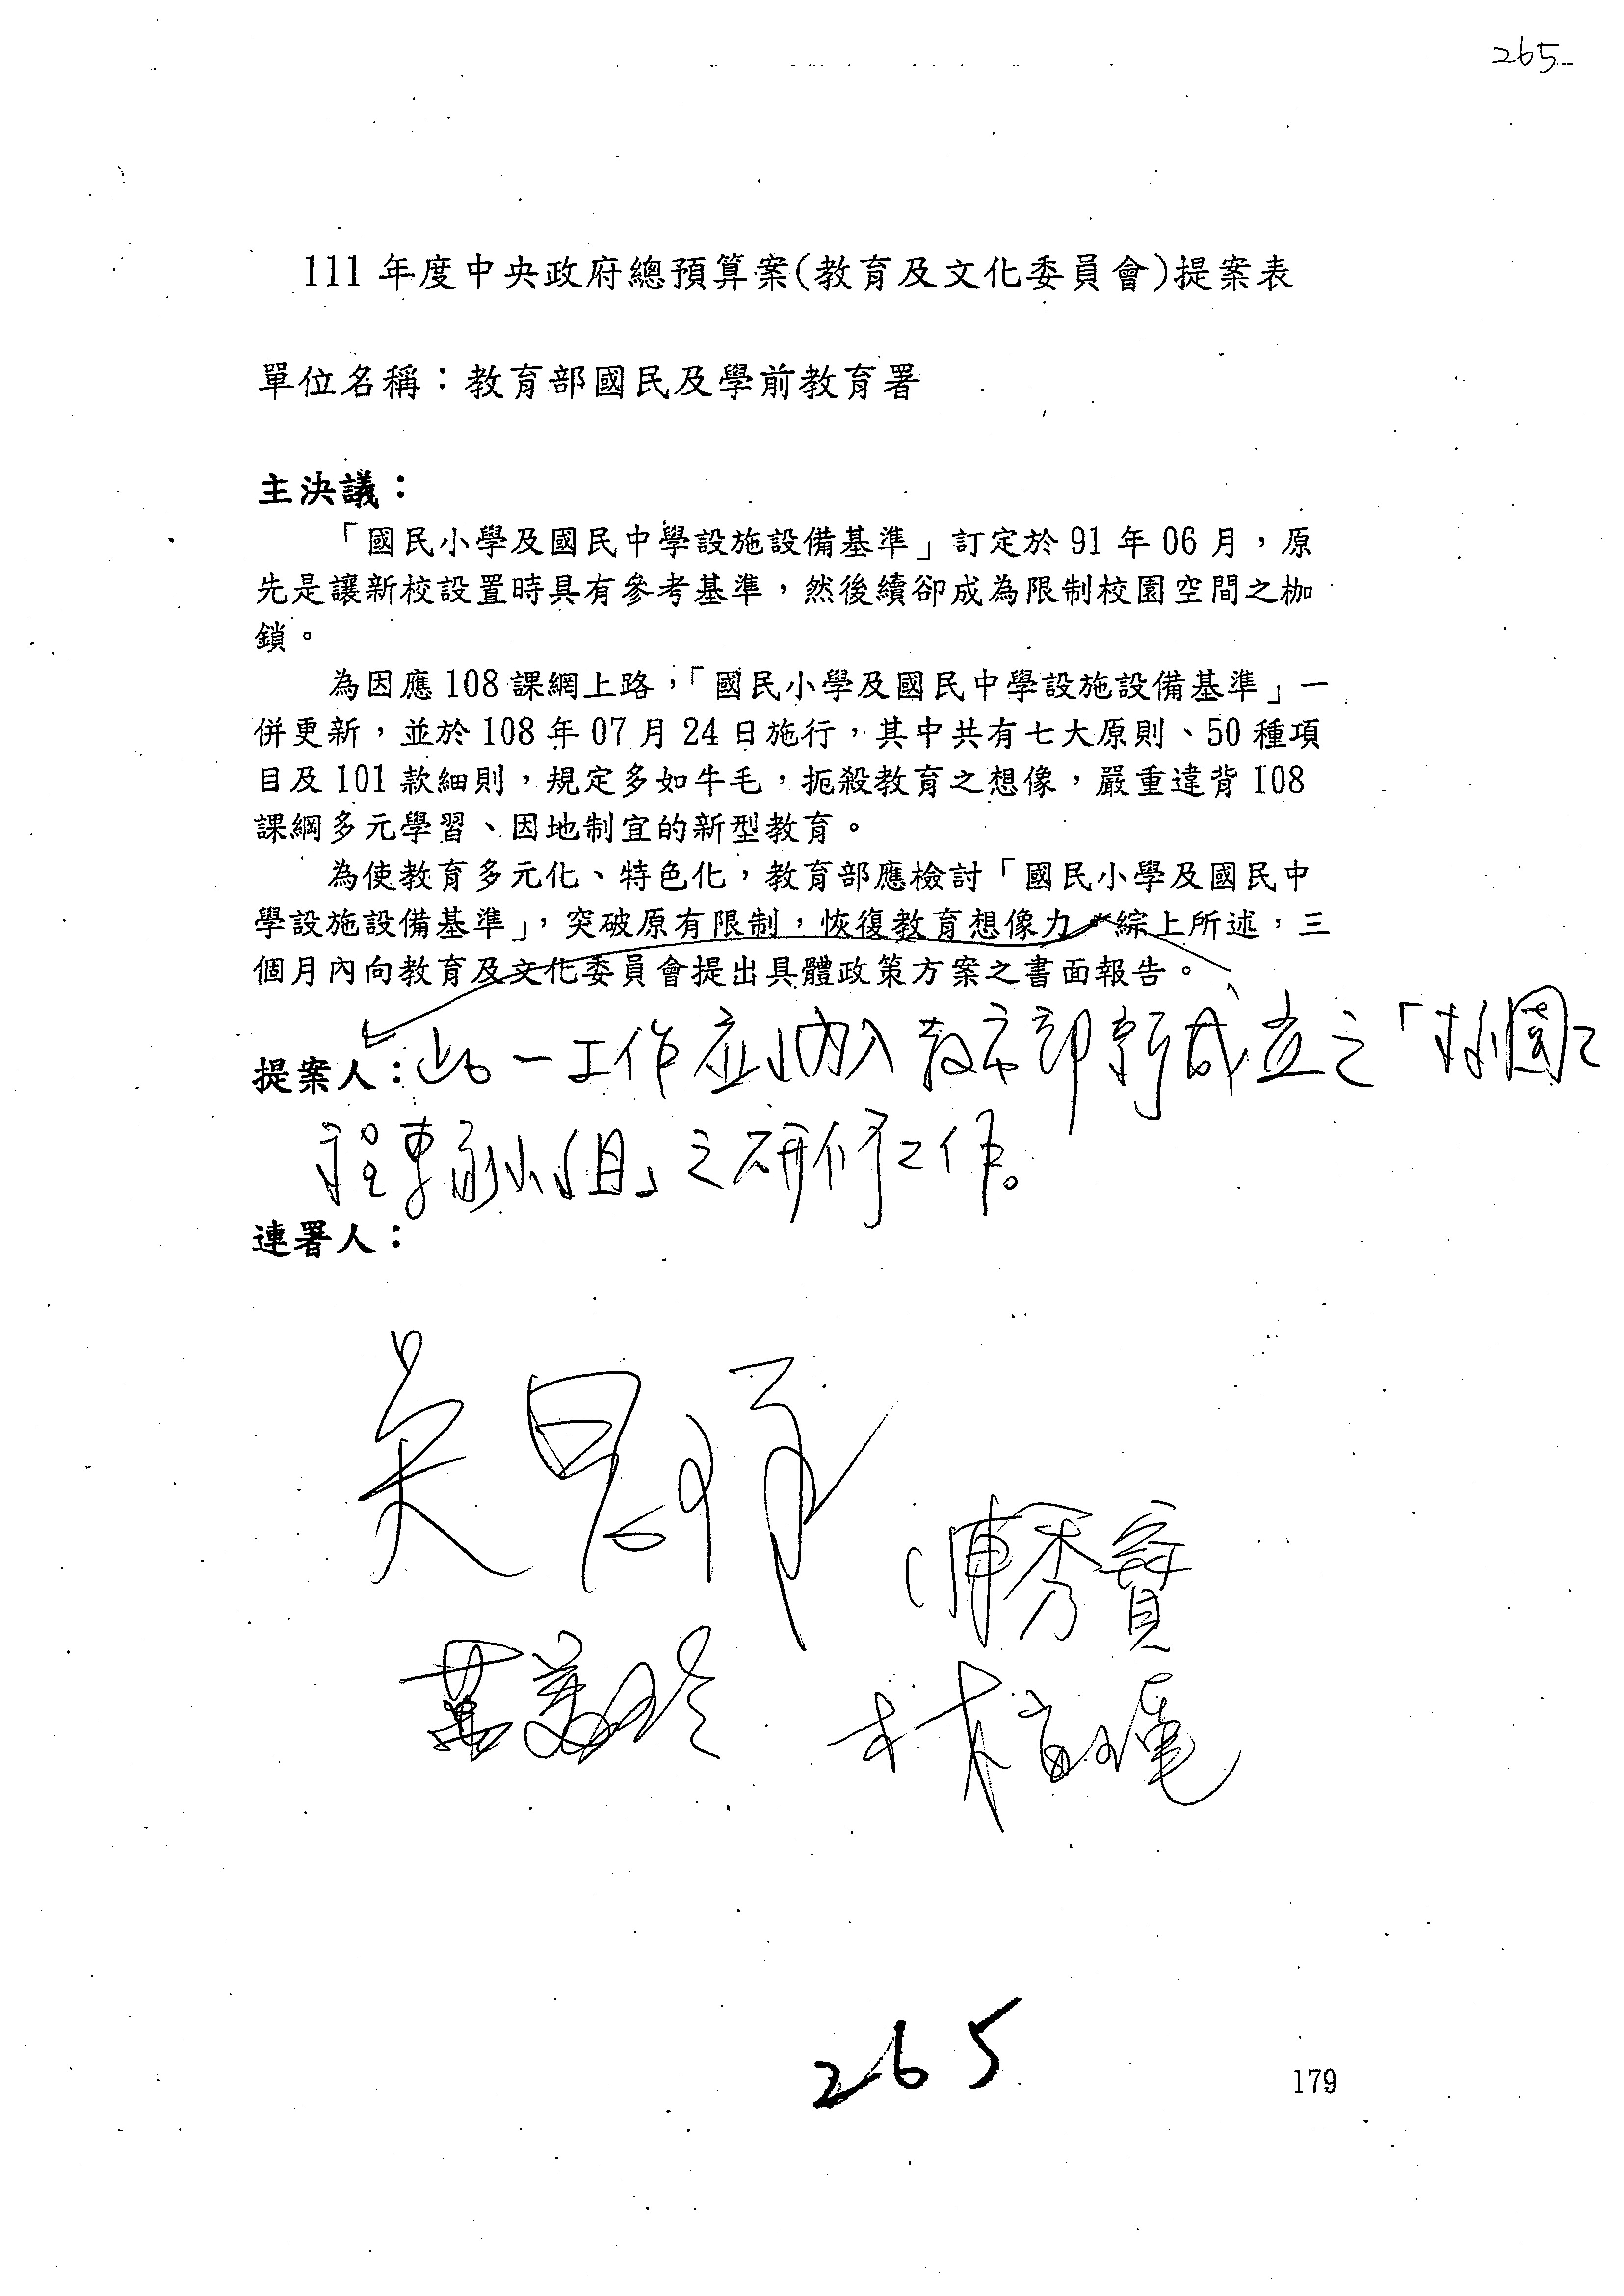 265
111 年度中央政府總預算案(教育及文化委員會)提案表
單位名稱：教育部國民及學前教育署
主決議：
「國民小學及國民中學設施設備基準」訂定於 91 年 06 月，原
先是讓新校設置時具有參考基準，然後續卻成為限制校園空間之枷
鎖。
為因應 108 課網上路，「國民小學及國民中學設施設備基準」一
併更新，並於 108 年 07 月 24 日施行，其中共有七大原則、50 種項
目及 101 款細則，規定多如牛毛，扼殺教育之想像，嚴重違背 108
課綱多元學習、因地制宜的新型教育。
為使教育多元化、特色化，教育部應檢討「國民小學及國民中
學設施設備基準」，突破原有限制，恢復教育想像力，綜上所述，三
個月內向教育及文化委員會提出具體政策方案之書面報告。
提案人：此一工作並納入教育部新成立之「校園工
程專業小組」之研修工作。
連署人：
吳思瑤
陳秀寳
萬美玲
林宜瑾
265
179